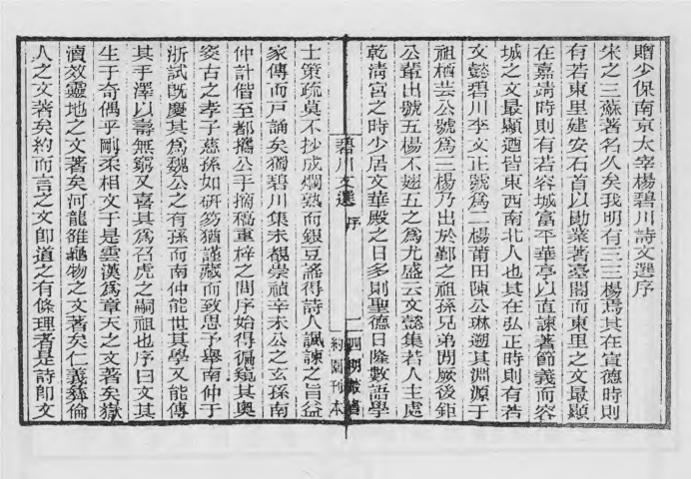 贈少保南京太宰楊碧川詩文選序
宋之三蘇著名久矣我明有三三楊焉其在宣德時則
有若東里建安石首以勛業著臺閣而東里之文最顯
在嘉靖時則有若容城富平華亭以直諫著節義而容
城之文最顯迺皆東西南北人也其在弘正時則有若
文懿碧川李文正號爲二楊莆田陳公琳遡其淵源于
祖栖芸公號爲三楊乃出於鄞之祖孫兄弟間厥後鉅
公輩出號五楊不翅五之爲尤盛云文懿集若人主處
乾淸宮之時少居文華殿之日多則聖德日隆數語學
碧川文選 序
一 四明叢書
約園刊本
士策疏莫不抄成爛熟而銀豆謠得詩人諷諫之旨益
家傳而戸誦矣獨碧川集未覩崇禎辛未公之玄孫南
仲計偕至都攜公手摘稿重梓之問序始得徧窺其奧
窔古之孝子慈孫如研笏猶謹藏而致思予舉南仲于
浙試旣慶其爲魏公之有孫而南仲能世其學又能傳
其手澤以壽無窮又喜其爲召虎之嗣祖也序曰文其
生于奇偶乎剛柔相文于是雲漢爲章天之文著矣嶽
瀆效靈地之文著矣河龍雒龜物之文著矣仁義彝倫
人之文著矣約而言之文卽道之有條理者是詩卽文